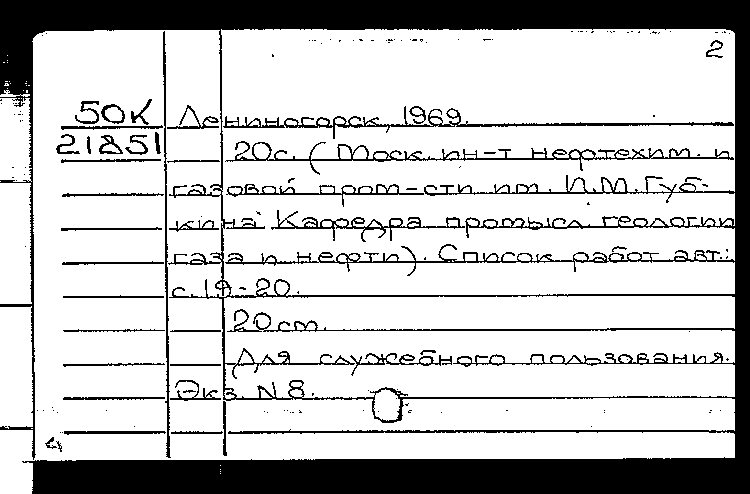 2
50К Лениногорск, 1969.
21851 20с. (Моск. ин-т нефтехим. и
газовой пром-сти им. И.М.Губ-
кина Кафедра промысл геологии
газа и нефти). Список работ авт.:
с.19-20.
20 см.
Для служебного пользования.
Экз. N 8.
4